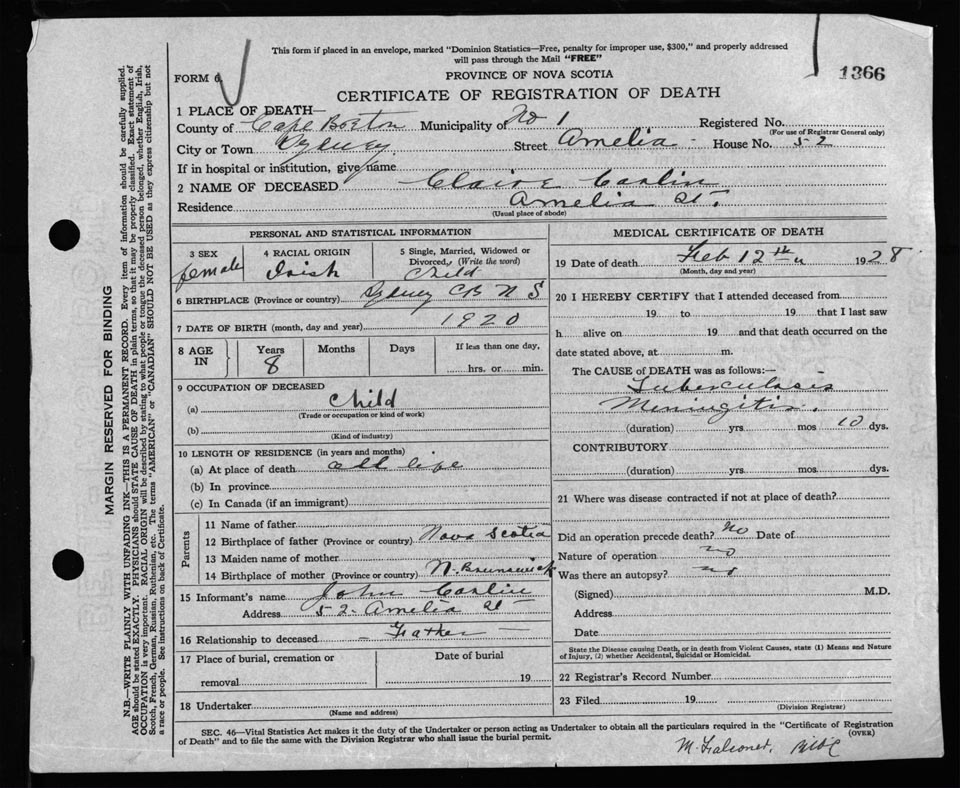 This form if placed in an envelope, marked "Dominion Statistics—Free, penalty for improper use, $300," and properly addressed
will pass through the Mail "FREE"
FORM 6
PROVINCE OF NOVA SCOTIA
1366
CERTIFICATE OF REGISTRATION OF DEATH
1 PLACE OF DEATH—
County of Cape Breton Municipality of No 1 Registered No.
(For use of Registrar General only)
City or Town Sydney Street Amelia House No. 52
If in hospital or institution, give name
2 NAME OF DECEASED Claire Carlin
Residence Amelia St.
(Usual place of abode)
PERSONAL AND STATISTICAL INFORMATION
3 SEX 4 RACIAL ORIGIN 5 Single, Married, Widowed or
Divorced, (Write the word)
female Irish Child
6 BIRTHPLACE (Province or country) Sydney CB N S
7 DATE OF BIRTH (month, day and year) 1920
8 AGE IN Years Months Days If less than one day,
8 hrs. or min.
9 OCCUPATION OF DECEASED
(a) Child
(Trade or occupation or kind of work)
(b)
(Kind of industry)
10 LENGTH OF RESIDENCE (in years and months)
(a) At place of death all life
(b) In province
(c) In Canada (if an immigrant)
Parents
11 Name of father
12 Birthplace of father (Province or country) Nova Scotia
13 Maiden name of mother
14 Birthplace of mother (Province or country) N. Brunswick
15 Informant's name John Carlin
Address 52 Amelia St
16 Relationship to deceased — Father —
17 Place of burial, cremation or Date of burial
removal 19
18 Undertaker
(Name and address)
MEDICAL CERTIFICATE OF DEATH
19 Date of death Feb 12th 1928
(Month, day and year)
20 I HEREBY CERTIFY that I attended deceased from
19 to 19 that I last saw
h alive on 19 and that death occurred on the
date stated above, at m.
The CAUSE of DEATH was as follows:—
Tuberculosis
Meningitis.
(duration) yrs. mos 10 dys.
CONTRIBUTORY
(duration) yrs. mos. dys.
21 Where was disease contracted if not at place of death?
Did an operation precede death? No Date of
Nature of operation no
Was there an autopsy? no
(Signed) M.D.
Address
Date
State the Disease causing Death, or in death from Violent Causes, state (1) Means and Nature
of Injury, (2) whether Accidental, Suicidal or Homicidal.
22 Registrar's Record Number
23 Filed 19
(Division Registrar)
SEC. 46—Vital Statistics Act makes it the duty of the Undertaker or person acting as Undertaker to obtain all the particulars required in the "Certificate of Registration
of Death" and to file the same with the Division Registrar who shall issue the burial permit.
(OVER)
MARGIN RESERVED FOR BINDING
N.B.—WRITE PLAINLY WITH UNFADING INK—THIS IS A PERMANENT RECORD. Every item of information should be carefully supplied.
AGE should be stated EXACTLY. PHYSICIANS should STATE CAUSE OF DEATH in plain terms, so that it may be properly classified. Exact statement of
OCCUPATION is very important. RACIAL ORIGIN will be described by stating to what people or tongue the deceased person belonged, whether English, Irish,
Scotch, French, German, Russian, Ruthenian, etc. The terms "AMERICAN" or "CANADIAN" SHOULD NOT BE USED as they express citizenship but not
a race or people. See instructions on back of Certificate.